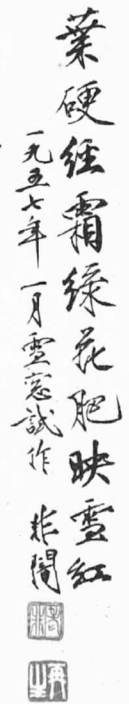 葉硬經霜綠花肥映雪紅
一九五七年一月雪窓試作 非闇